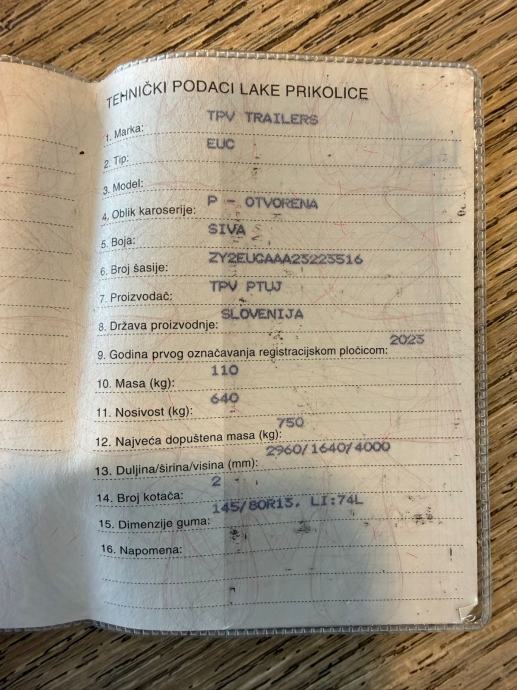 TEHNIČKI PODACI LAKE PRIKOLICE
1. Marka: TPV TRAILERS
2. Tip: EUC
3. Model:
4. Oblik karoserije: P - OTVORENA
5. Boja: SIVA
6. Broj šasije: ZY2EUCAAA23223516
7. Proizvođač: TPV PTUJ
8. Država proizvodnje: SLOVENIJA
9. Godina prvog označavanja registracijskom pločicom: 2023
10. Masa (kg): 110
11. Nosivost (kg): 640
12. Najveća dopuštena masa (kg): 750
13. Duljina/širina/visina (mm): 2960/1640/4000
14. Broj kotača: 2
15. Dimenzije guma: 145/80R13, LI:74L
16. Napomena: